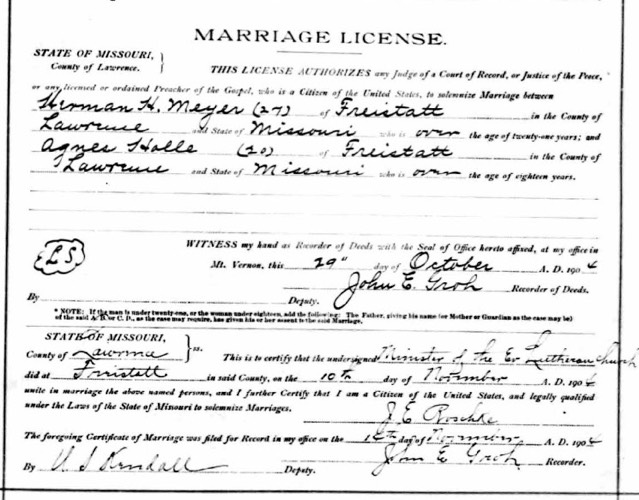 MARRIAGE LICENSE.
STATE OF MISSOURI,
County of Lawrence.
THIS LICENSE AUTHORIZES any Judge of a Court of Record, or Justice of the Peace,
or any licensed or ordained Preacher of the Gospel, who is a Citizen of the United States, to solemnize Marriage between
Herman H. Meyer (27) of Freistatt in the County of
Lawrence and State of Missouri who is over the age of twenty-one years; and
Agnes Holle (20) of Freistatt in the County of
Lawrence and State of Missouri who is over the age of eighteen years.
LS
WITNESS my hand as Recorder of Deeds with the Seal of Office hereto affixed, at my office in
Mt. Vernon, this 29" day of October A. D. 1904
John E. Groh Recorder of Deeds.
By Deputy.
* NOTE: If the man is under twenty-one, or the woman under eighteen, add the following: The Father, giving his name (or Mother or Guardian as the case may be)
of the said A. B. or C. D., as the case may require, has given his or her assent to the said Marriage.
STATE OF MISSOURI,
County of Lawrence ss.
This is to certify that the undersigned Minister of the Ev Lutheran Church
did at Freistatt in said County, on the 10th day of November A. D. 1904
unite in marriage the above named persons, and I further Certify that I am a Citizen of the United States, and legally qualified
under the Laws of the State of Missouri to solemnize Marriages.
J. E. Roschke
The foregoing Certificate of Marriage was filed for Record in my office on the day of November A. D. 1904
By U S Kendall Deputy. John E Groh Recorder.